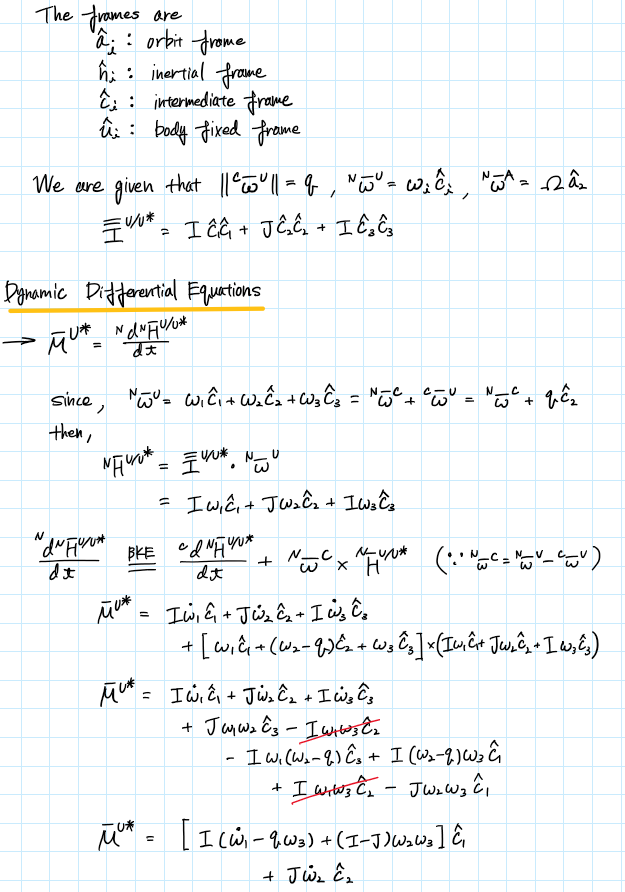 The frames are
â_i : orbit frame
n̂_i : inertial frame
ĉ_i : intermediate frame
û_i : body fixed frame
We are given that ||ᶜω̄ᵁ|| = q , ᴺω̄ᵁ = ω_i ĉ_i , ᴺω̄ᴬ = Ω â₂
I̿^{U/U*} = I ĉ₁ĉ₁ + J ĉ₂ĉ₂ + I ĉ₃ĉ₃
Dynamic Differential Equations
→ M̄^{U*} = ᴺd ᴺH̄^{U/U*} / dt
since, ᴺω̄ᵁ = ω₁ĉ₁ + ω₂ĉ₂ + ω₃ĉ₃ = ᴺω̄ᶜ + ᶜω̄ᵁ = ᴺω̄ᶜ + qĉ₂
then,
ᴺH̄^{U/U*} = I̿^{U/U*} · ᴺω̄ᵁ
= Iω₁ĉ₁ + Jω₂ĉ₂ + Iω₃ĉ₃
ᴺd ᴺH̄^{U/U*} / dt BKE = ᶜd ᴺH̄^{U/U*} / dt + ᴺω̄ᶜ × ᴺH̄^{U/U*} (∵ ᴺω̄ᶜ = ᴺω̄ᵁ − ᶜω̄ᵁ)
M̄^{U*} = Iω̇₁ĉ₁ + Jω̇₂ĉ₂ + Iω̇₃ĉ₃
+ [ω₁ĉ₁ + (ω₂−q)ĉ₂ + ω₃ĉ₃] × (Iω₁ĉ₁ + Jω₂ĉ₂ + Iω₃ĉ₃)
M̄^{U*} = Iω̇₁ĉ₁ + Jω̇₂ĉ₂ + Iω̇₃ĉ₃
+ Jω₁ω₂ĉ₃ − Iω₁ω₃ĉ₂
− Iω₁(ω₂−q)ĉ₃ + I(ω₂−q)ω₃ĉ₁
+ Iω₁ω₃ĉ₂ − Jω₂ω₃ĉ₁
M̄^{U*} = [I(ω̇₁ − qω₃) + (I−J)ω₂ω₃]ĉ₁
+ Jω̇₂ĉ₂